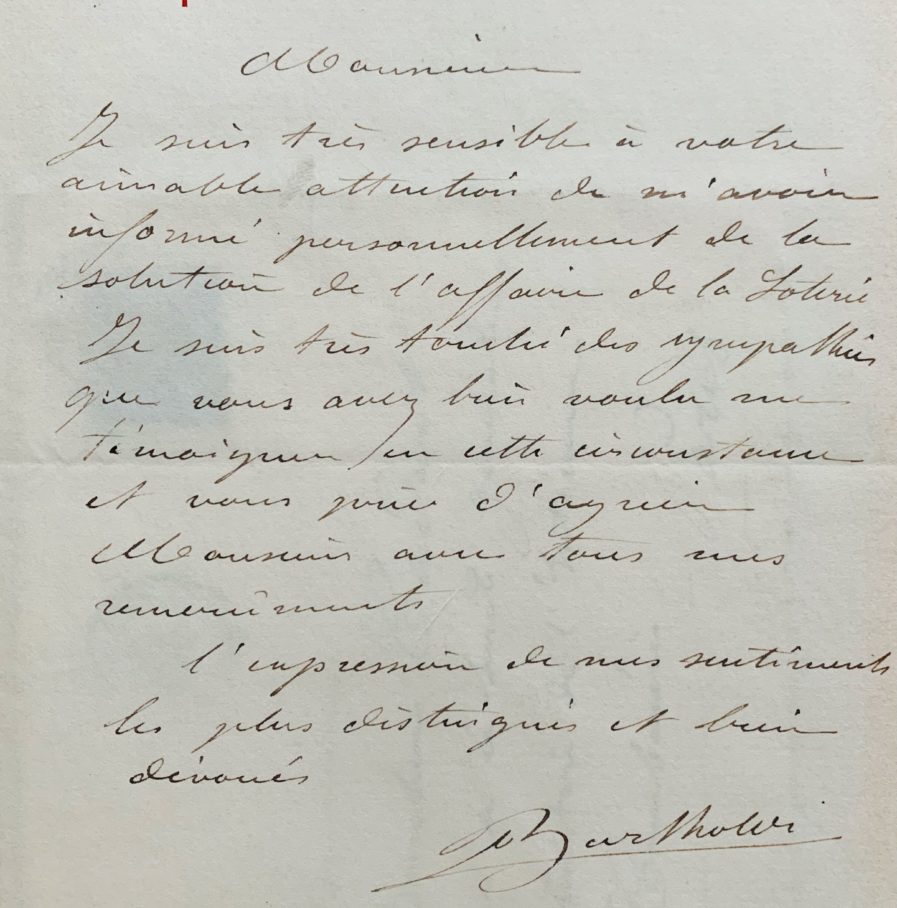 Monsieur
Je suis très sensible à votre
aimable attention de m'avoir
informé personnellement de la
solution de l'affaire de la Loterie
Je suis très touché des sympathies
que vous avez bien voulu me
témoigner en cette circonstance
et vous prie d'agréer
Monsieur avec tous mes
remerciments
l'expression de mes sentiments
les plus distingués et bien
dévoués
Bartholdi